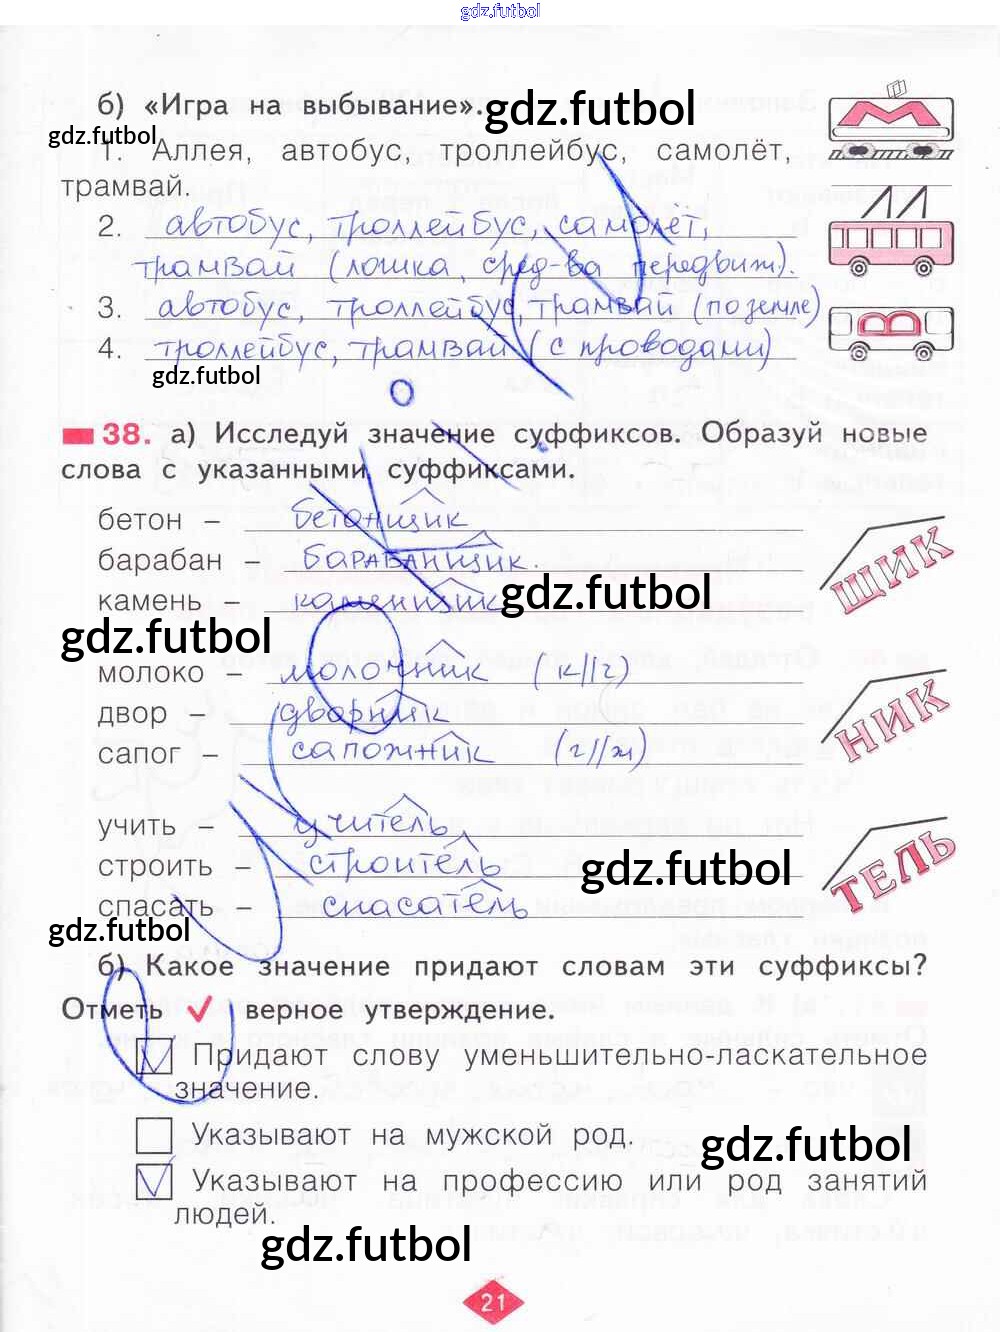 gdz.futbol
б) «Игра на выбывание».
gdz.futbol
gdz.futbol
1. Аллея, автобус, троллейбус, самолёт,
трамвай.
2. автобус, троллейбус, самолёт,
трамвай (лошка, сред-ва передвиж).
3. автобус, троллейбус, трамвай (по земле)
4. троллейбус, трамвай (с проводами)
gdz.futbol
М
В
38. а) Исследуй значение суффиксов. Образуй новые
слова с указанными суффиксами.
бетон – бетонщик
барабан – барабанщик.
камень – каменщик
ЩИК
gdz.futbol
gdz.futbol
молоко – молочник (к//ч)
двор – дворник
сапог – сапожник (г//ж)
НИК
учить – учитель
строить – строитель
спасать – спасатель
ТЕЛЬ
gdz.futbol
gdz.futbol
б) Какое значение придают словам эти суффиксы?
Отметь верное утверждение.
Придают слову уменьшительно-ласкательное
значение.
Указывают на мужской род.
gdz.futbol
Указывают на профессию или род занятий
людей.
gdz.futbol
21